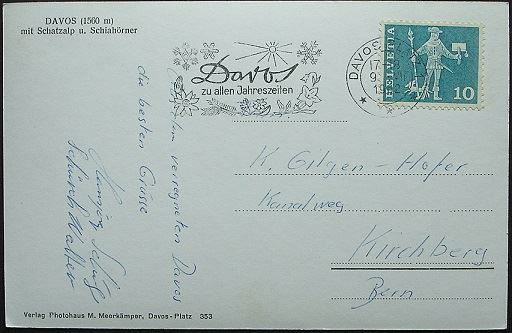 DAVOS (1560 m)
mit Schatzalp u. Schiahörner
Davos
zu allen Jahreszeiten
DAVOS
HELVETIA
10
verregneten Davos
die besten Grüsse
Walter
K. Gilgen-Hofer
Kanalweg
Kirchberg
Bern
Verlag Photohaus M. Meerkämper, Davos-Platz 353